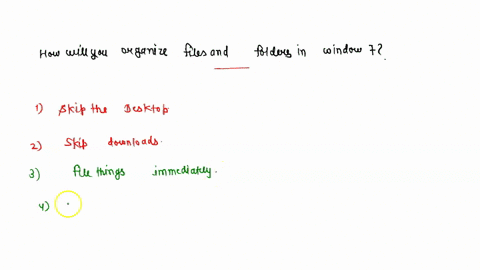 How will you organize files and folders in window 7?
1) Skip the Desktop
2) Skip downloads.
3) file things immediately.
4)